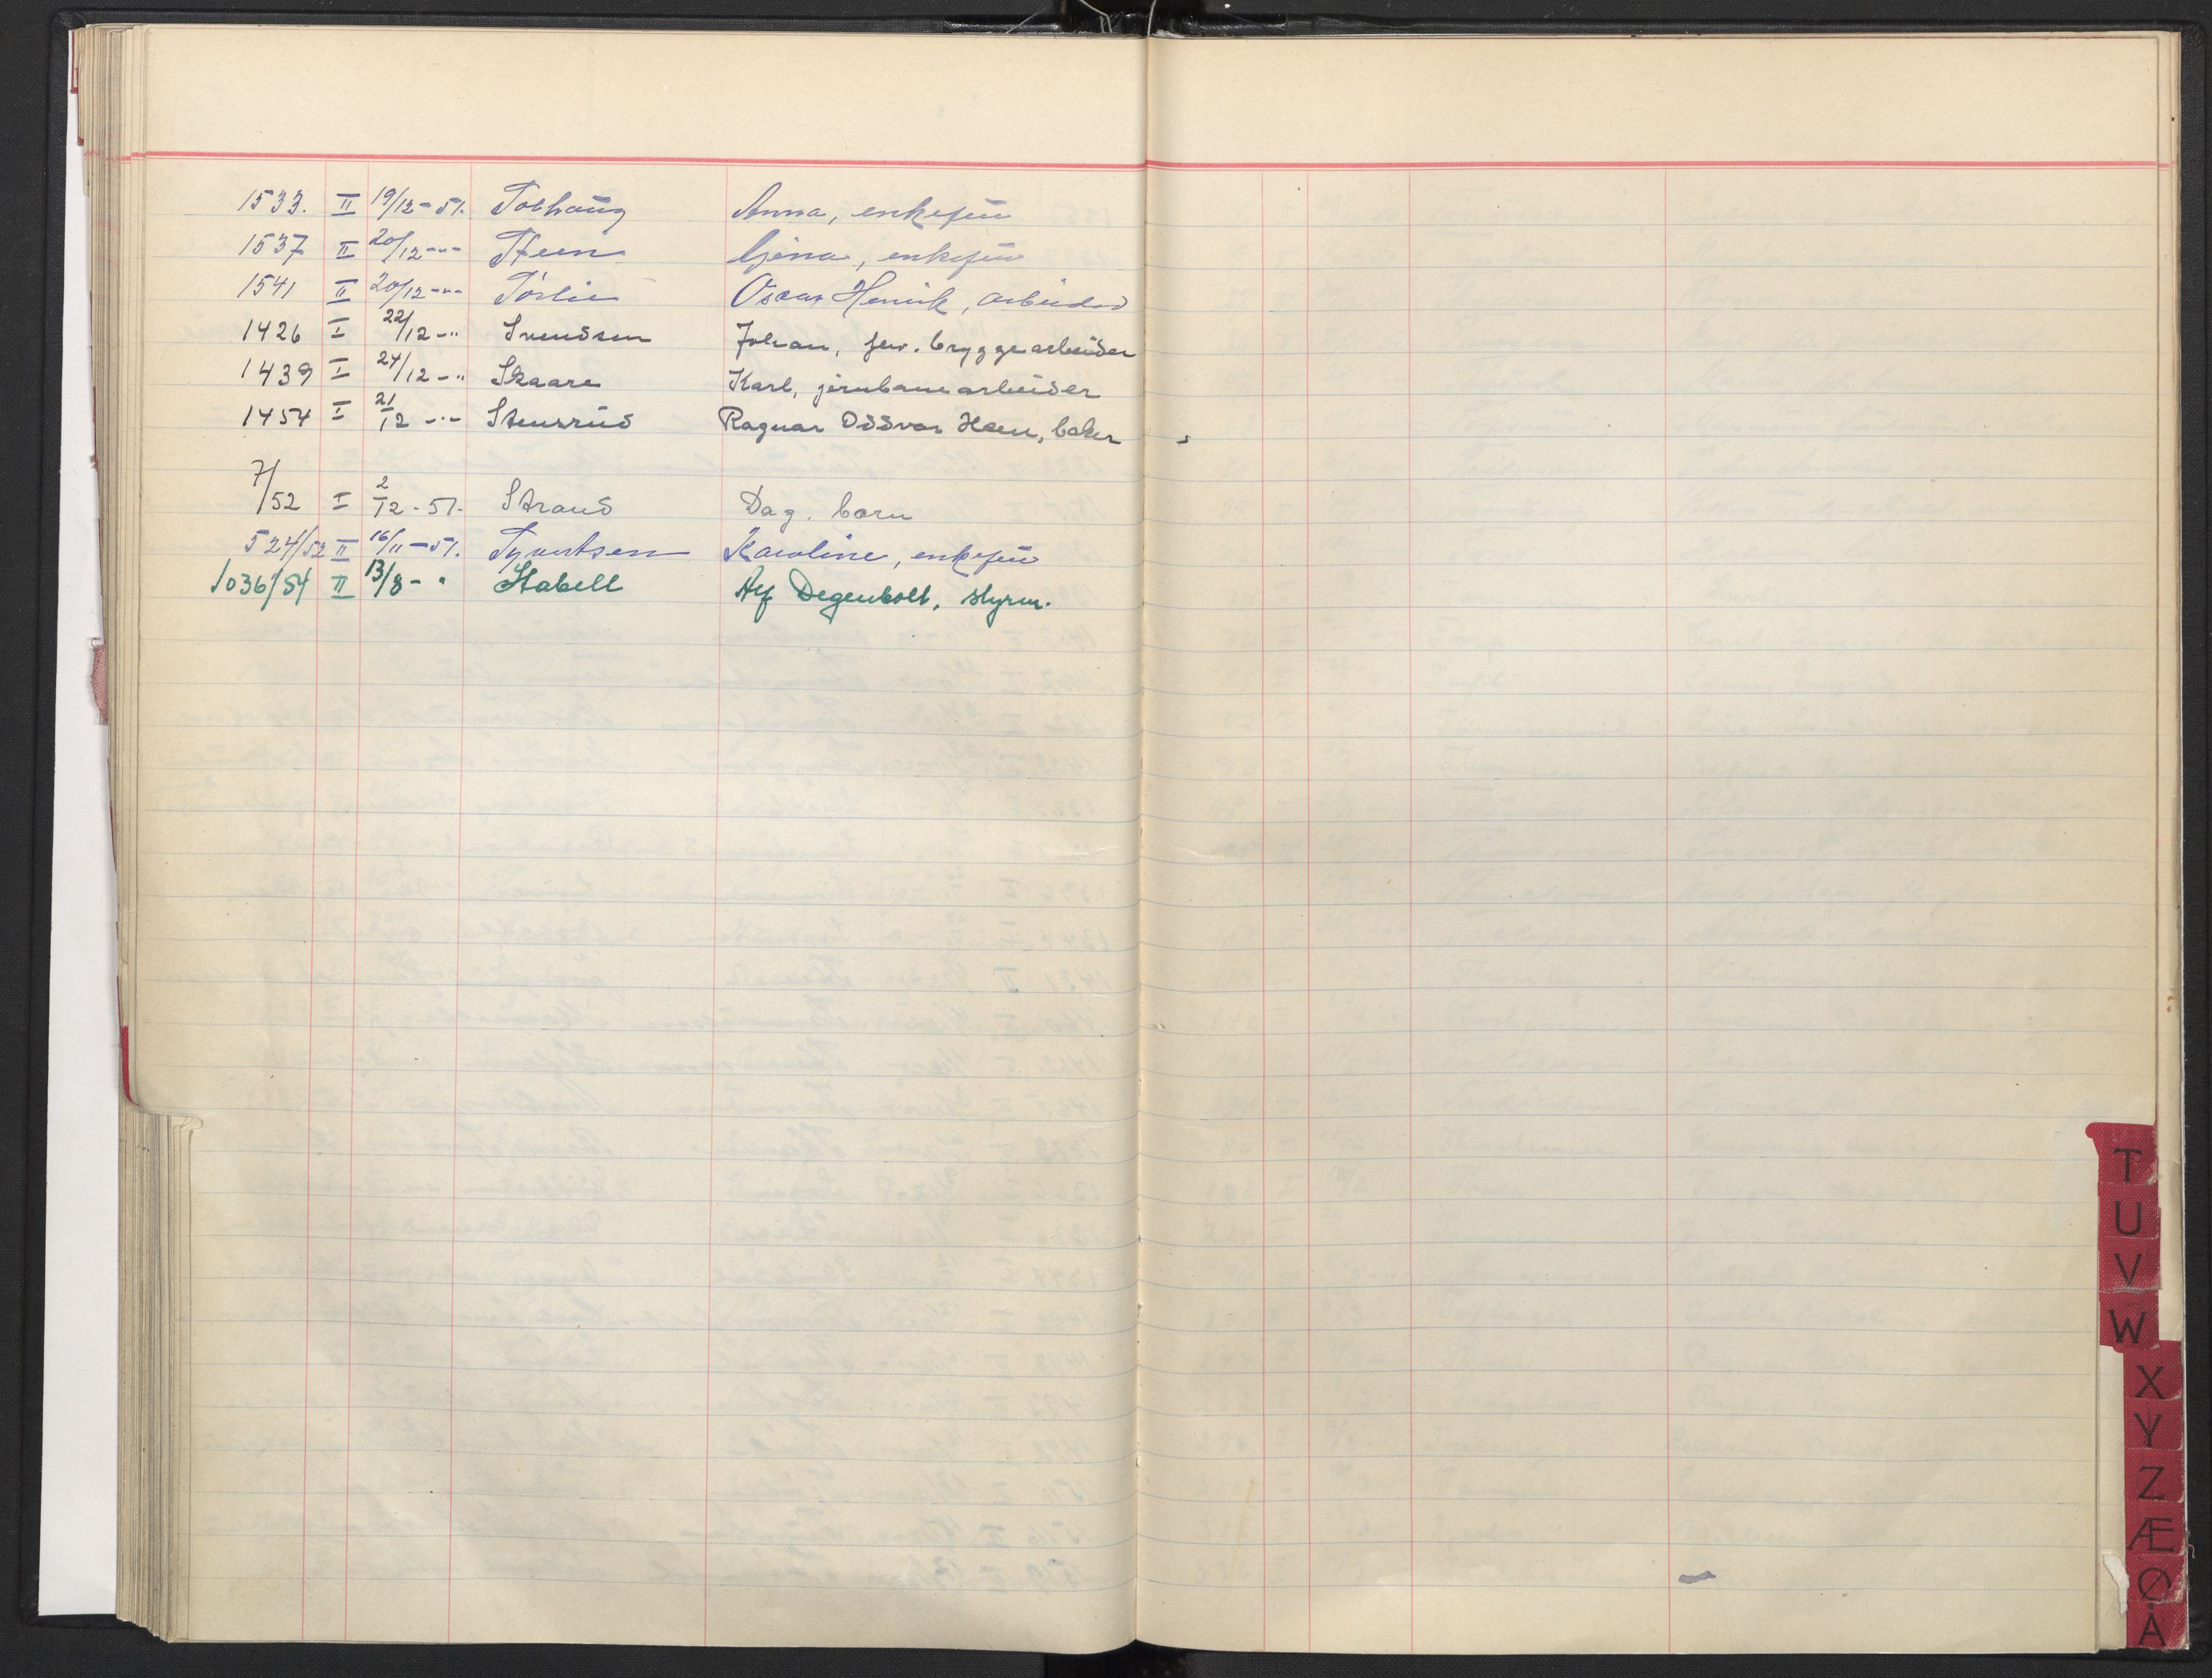 1533. II 19/12-51. Solhaug Anna, enkefru
1537 II 20/12-"- Steen Gina, enkefru
1541 II 20/12-"- Sørlie Oscar Henrik, arbeider
1426 I 22/12-" Svendsen Johan, fhv. bryggearbeider
1439 I 24/12-" Skaare Karl, jernbanearbeider
1454 I 21/12-"- Stensrud Ragnar Oddvar Hoen, baker
7/52 I 2/12-51. Strand Dag, barn
524/52 II 16/11-51. Syvertsen Karoline, enkefru
1036/54 II 13/8-" Stabell Alf Degenbolt, styrm.
T
U
V
W
X
Y
Z
Æ
Ø
Å